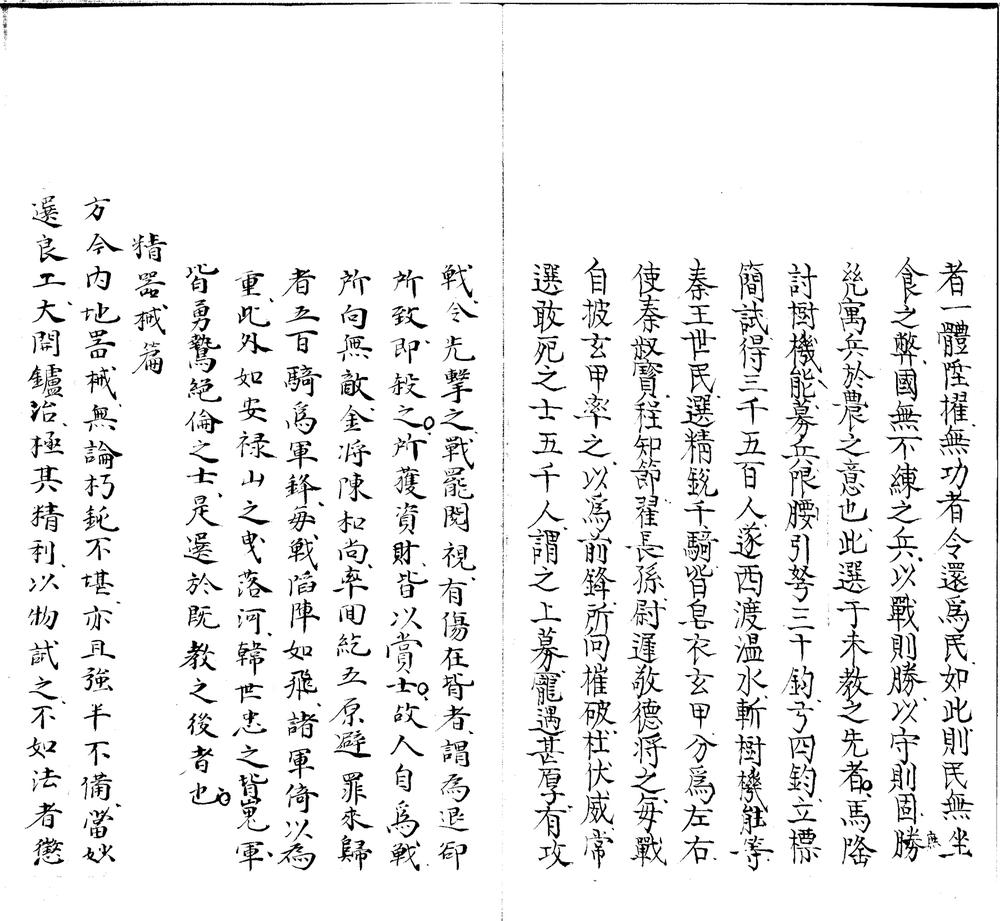 者一體陞擢無功者令還爲民如此則民無坐
食之弊國無不練之兵以戰則勝以守則固勝庶
㡬寓兵於農之意也此選于未教之先者馬隆
討樹機能募兵限腰引弩三十鈞弓四鈞立標
簡試得三千五百人遂西渡溫水斬樹機能等
秦王世民選精銳千騎皆皂衣玄甲分爲左右
使秦叔寶程知節翟長孫尉遲敬德將之每戰
自披玄甲率之以爲前鋒所向摧破杜伏威常
選敢死之士五千人謂之上募寵遇甚厚有攻
戰令先擊之戰罷閱視有傷在背者謂為退却
所致即殺之所獲資財皆以賞士故人自爲戰
所向無敵金將陳和尚率囬紇五原避罪來歸
者五百騎爲軍鋒每戰陷陣如飛諸軍倚以為
重此外如安禄山之曳落河韓世忠之背嵬軍
皆勇驚絕倫之士是選於既教之後者也
精器械篇
方今內地器械無論朽鈍不堪亦且強半不備當妙
選良工大開鑪冶極其精利以物試之不如法者懲